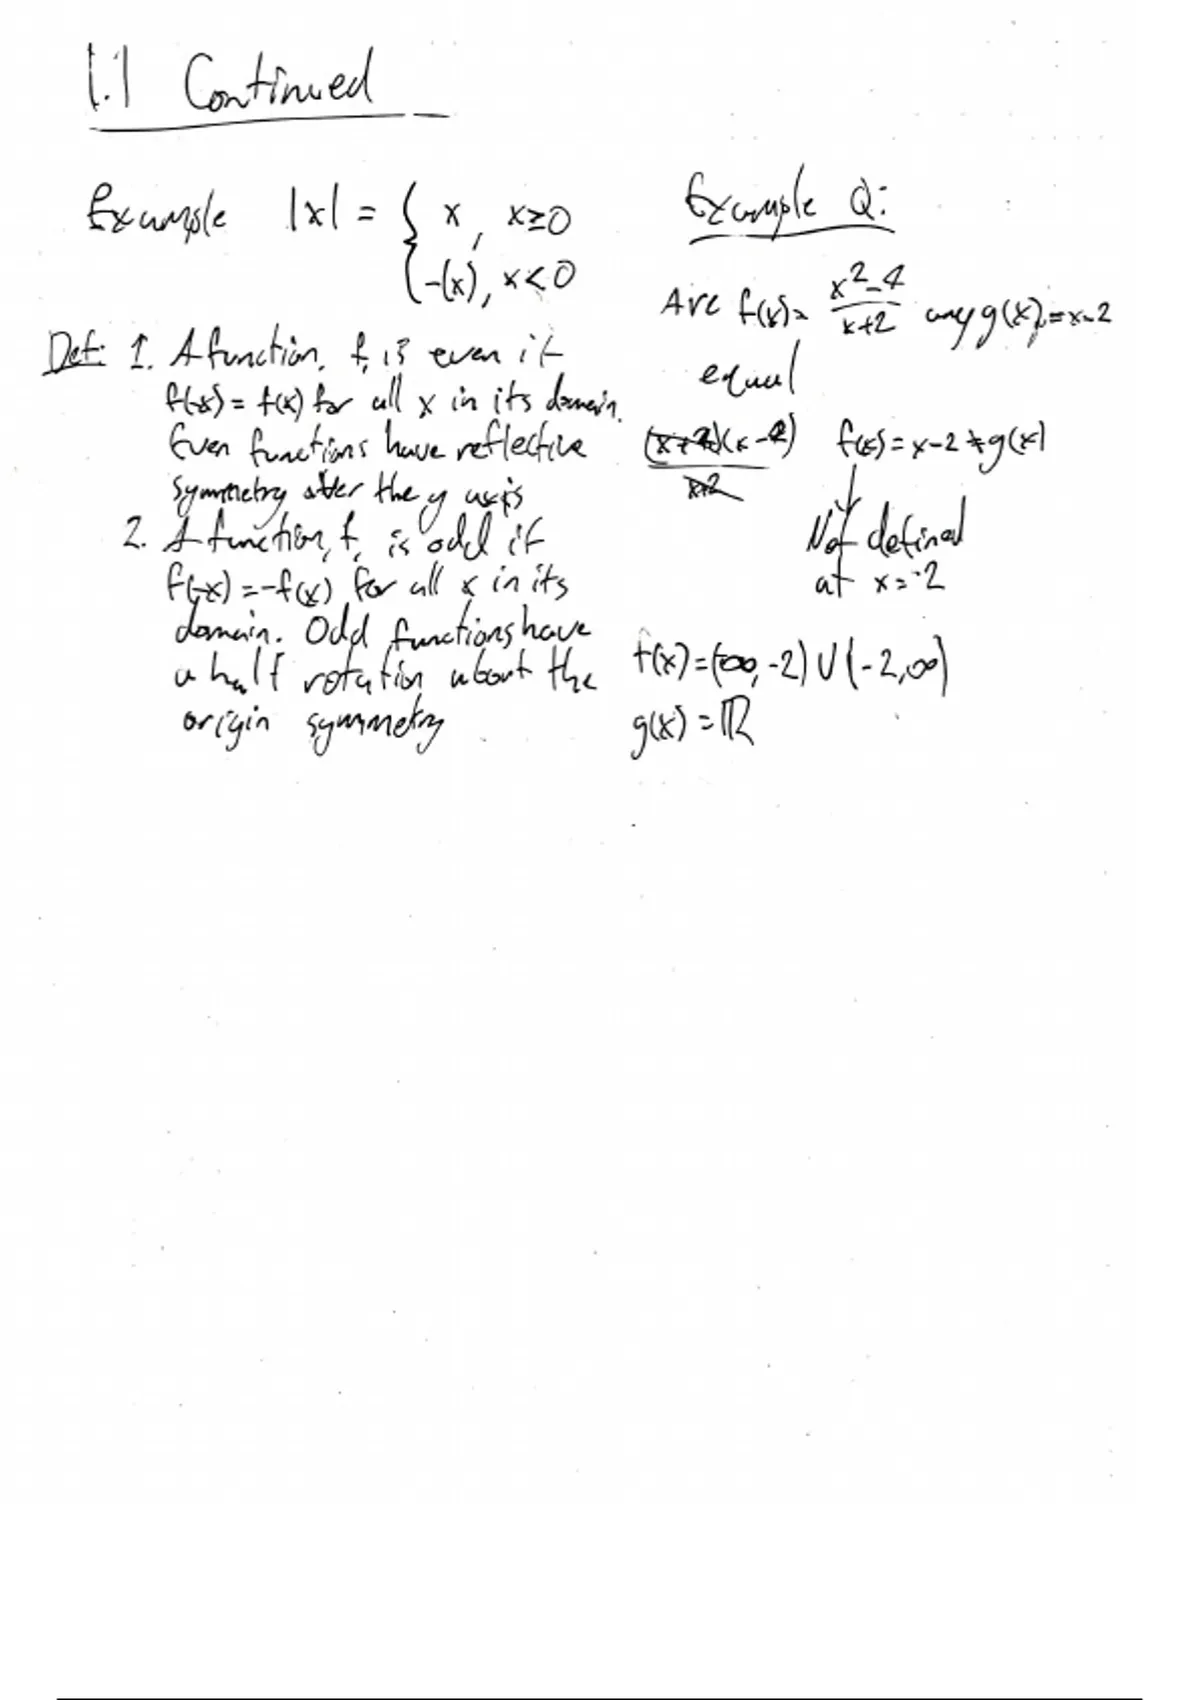 1.1 Continued
Example |x| = { x, x≥0
-(x), x<0
Def: 1. A function, f, is even if
f(-x) = f(x) for all x in its domain.
Even functions have reflective
symmetry after the y axis
2. A function, f, is odd if
f(-x) = -f(x) for all x in its
domain. Odd functions have
a half rotation about the
origin symmetry
Example Q:
Are f(x) = x²-4 / x+2 any g(x) = x-2
equal
(x+2)(x-2) / x+2 f(x) = x-2 ≠ g(x)
Not defined
at x = -2
f(x) = (-∞, -2) ∪ (-2, ∞)
g(x) = ℝ